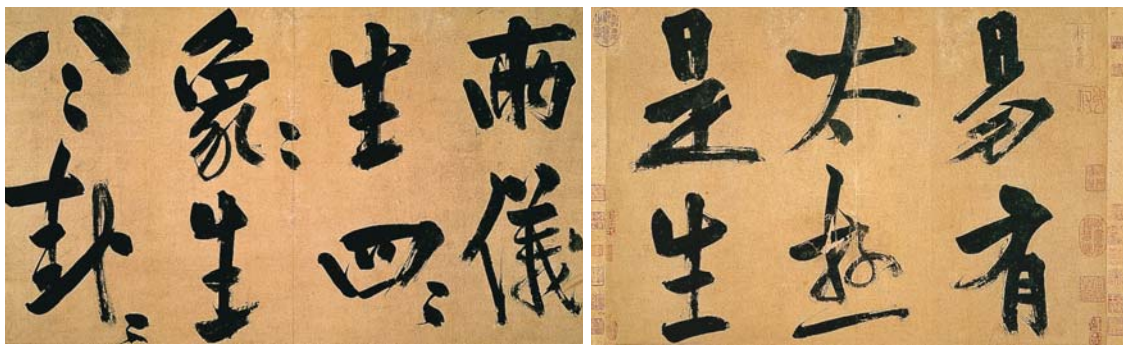 易有
太極
是生
兩儀
生四〻
象〻生
八〻卦〻